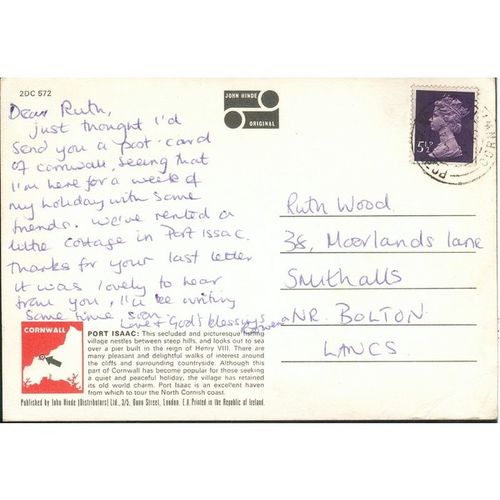 2DC 572
JOHN HINDE
ORIGINAL
5½P
Dear Ruth,
just thought I'd
send you a post-card
of cornwall, seeing that
I'm here for a week of
my holiday with some
friends. We've rented a
little cottage in Port Issac.
Thanks for your last letter
it was lovely to hear
from you, I'll be writing
some time soon
Love & God's blessings
Ruth Wood
38, Moorlands lane
Smithalls
NR. BOLTON
LANCS
CORNWALL
PORT ISAAC: This secluded and picturesque fishing
village nestles between steep hills, and looks out to sea
over a pier built in the reign of Henry VIII. There are
many pleasant and delightful walks of interest around
the cliffs and surrounding countryside. Although this
part of Cornwall has become popular for those seeking
a quiet and peaceful holiday, the village has retained
its old world charm. Port Isaac is an excellent haven
from which to tour the North Cornish Coast.
Published by John Hinde (Distributors) Ltd., 3/5, Dunn Street, London. E.8. Printed in the Republic of Ireland.